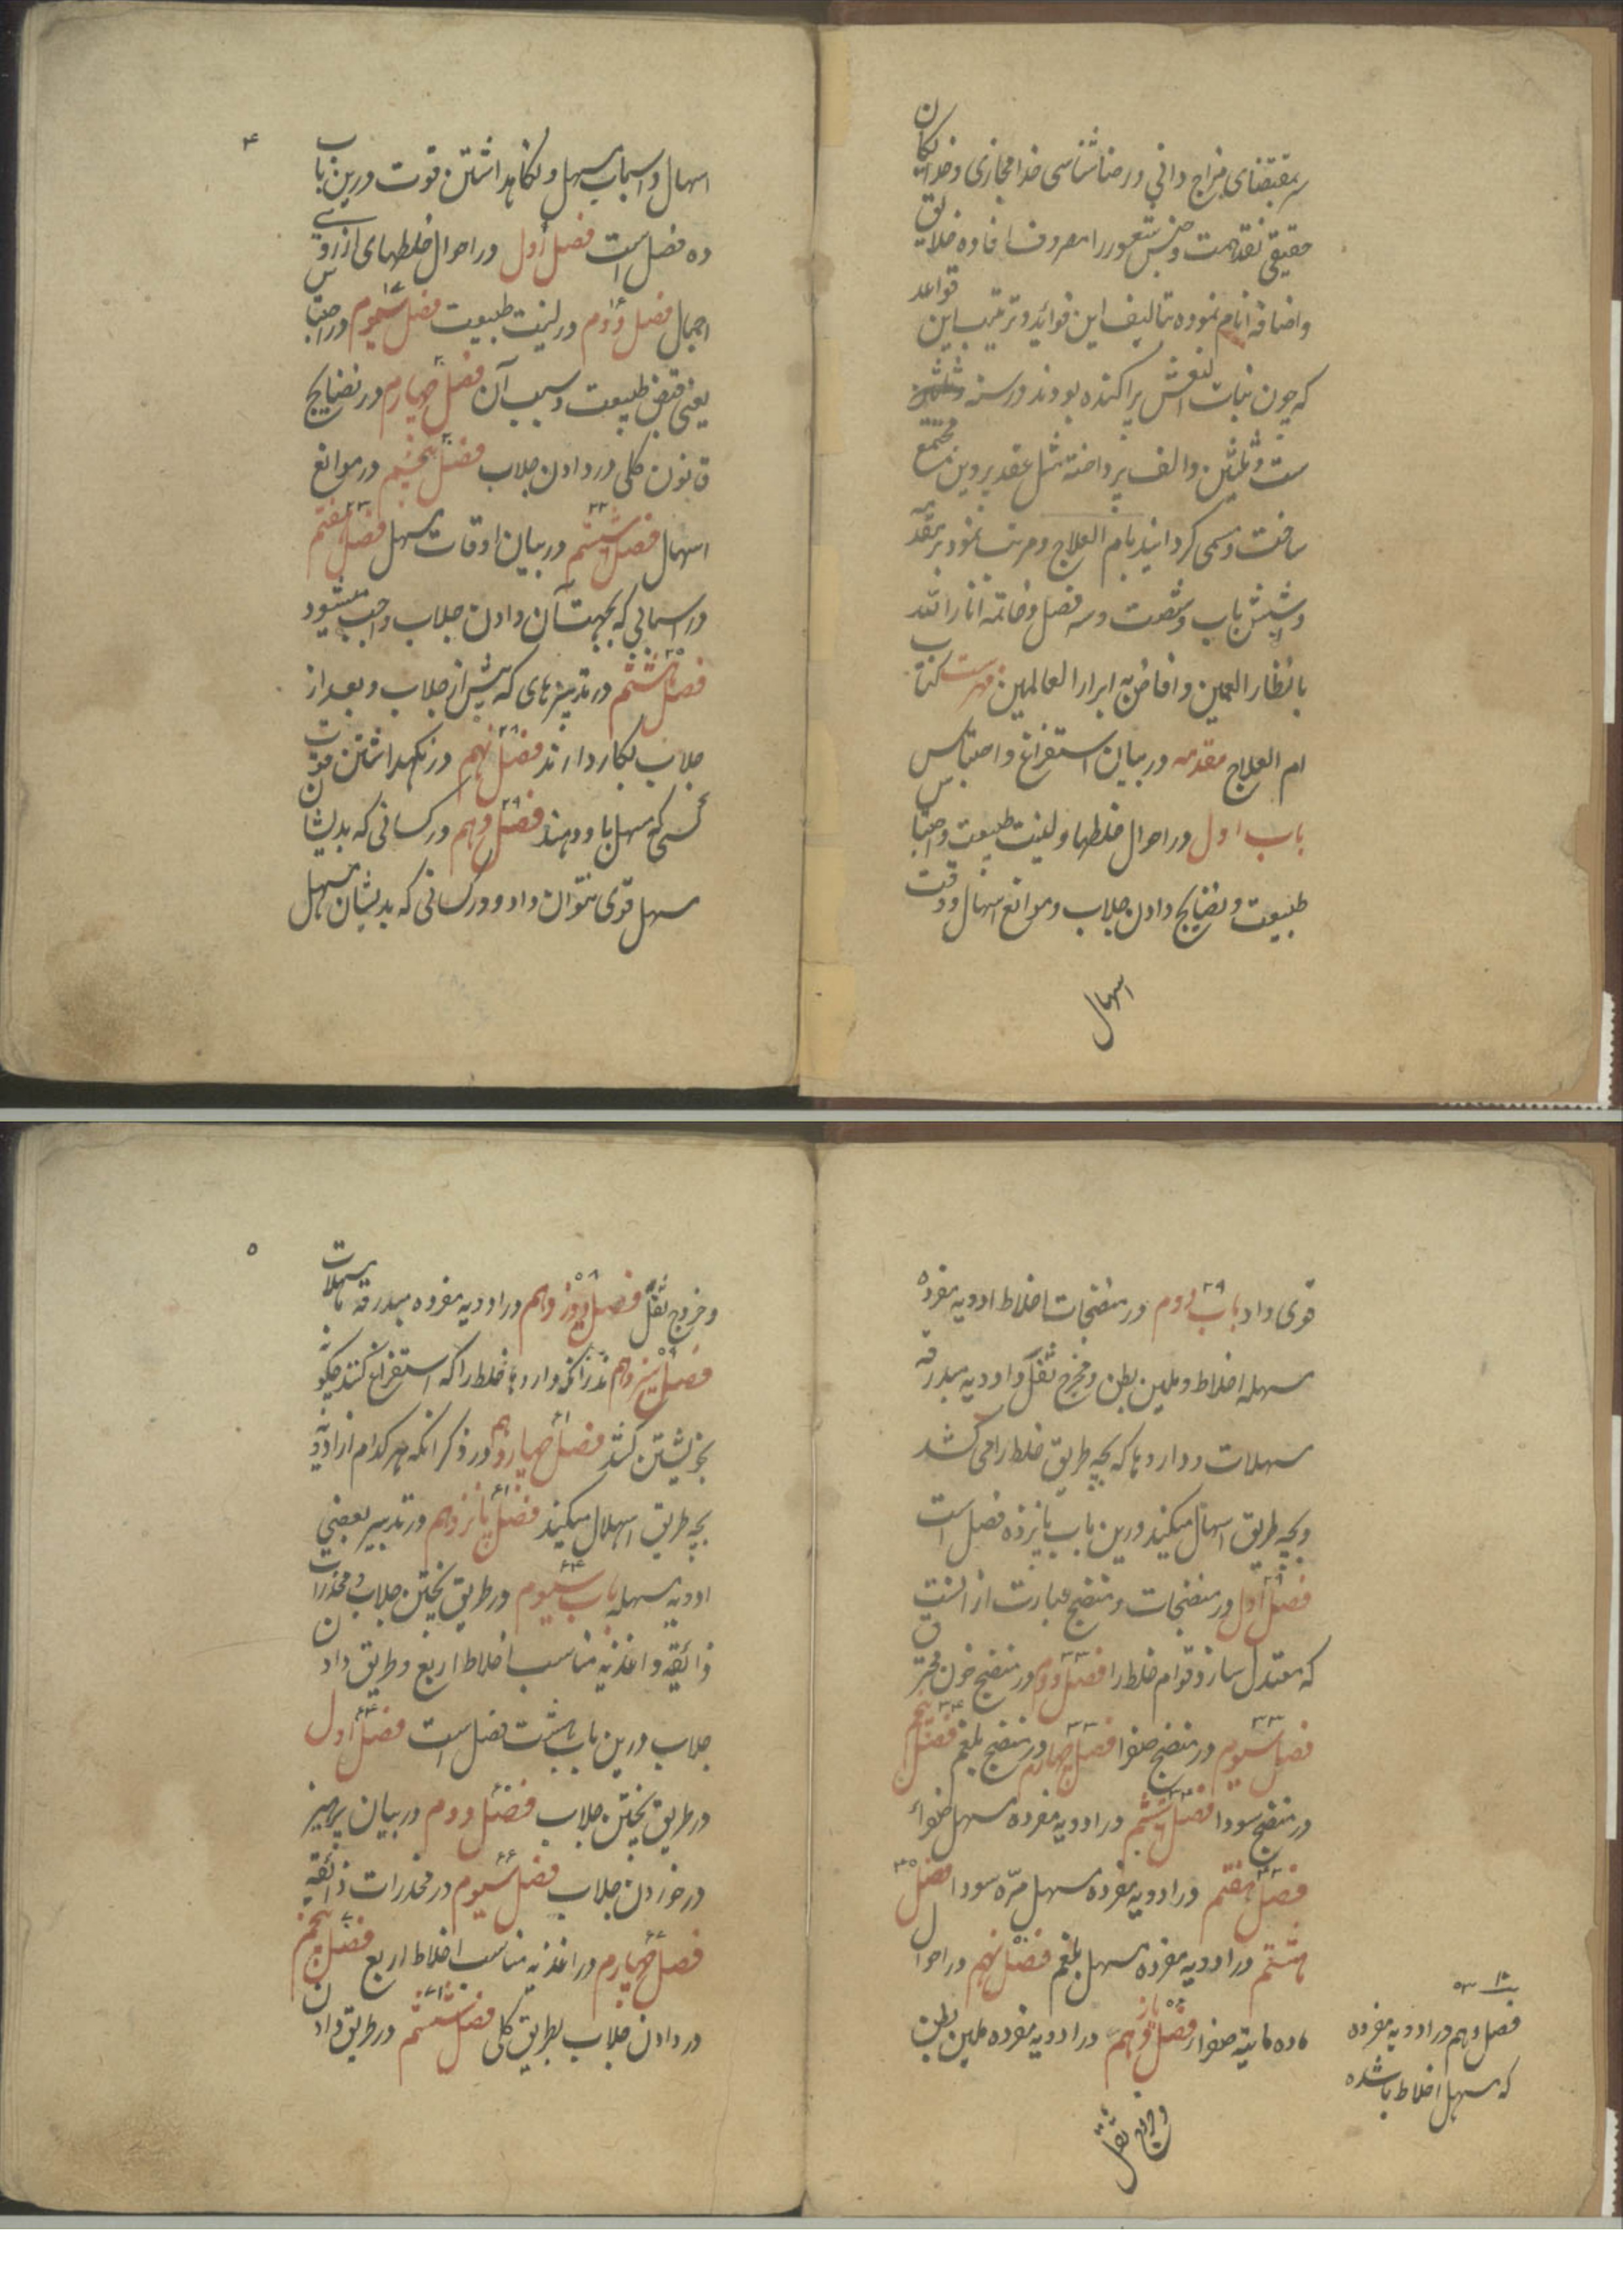 بمقتضای مزاج دانی و رضاشناسی خدا مجازی و خدایکان
حقیقی نقد همت و جنس شعور را مصروف افاده خلایق
و اضافه انام نموده بتالیف این فوائد و ترتیب این قواعد
که چون بنات النعش پراکنده بودند در سنه
ست و ثلثین و الف پرداخته مثل عقد پروین مجتمع
ساخت و مسمی کردانید بام العلاج و مرتب نمود بر مقدمه
و شش باب و شصت و سه فصل و خاتمه انار الله
بانظار العمین و افاض به ابرار العالمین فهرست کتاب
ام العلاج مقدمه در بیان استفراغ و احتباس
باب اول در احوال خلطها و لینت طبیعت و احتباس
طبیعت و نضایج دادن جلاب و موانع اسهال و وقت
اسهال
۴
اسهال و اسباب مسهل و نکاهداشتن قوت درین باب
ده فصل است فصل اول در احوال خلطهای از روی
اجمال فصل دوم در لینت طبیعت فصل سیوم در احتباس
یعنی قبض طبیعت و سبب آن فصل چهارم در نضایج
قانون کلی در دادن جلاب فصل پنجم در موانع
اسهال فصل ششم در بیان اوقات مسهل فصل هفتم
در اسبابی که بجهت آن دادن جلاب واجب میشود
فصل هشتم در تدبیرهای که پیش از جلاب و بعد از
جلاب بکار دارند فصل نهم در نکهداشتن قوت
کسی که مسهل باو دهند فصل دهم در کسانی که بدیشان
مسهل قوی نتوان داد و در کسانی که بدیشان مسهل
قوی داد باب دوم در منضجات اخلاط ادویه مفرده
مسهله اخلاط و ملین بطن و مخرج ثفل و ادویه مبدرقه
مسهلات و داروها که بچه طریق خلط را می کشد
و بچه طریق اسهال میکند درین باب پانزده فصل است
فصل اول در منضجات و منضج عبارت از انست
که معتدل سازد قوام خلط را فصل دوم در منضج خون محترق
فصل سیوم در منضج صفرا فصل چهارم در منضج بلغم فصل پنجم
در منضج سودا فصل ششم در ادویه مفرده مسهل صفراء
فصل هفتم در ادویه مفرده مسهل مرّه سودا فصل
هشتم در ادویه مفرده مسهل بلغم فصل نهم در احوال
ماده مایته صفرا فصل یازدهم در ادویه مفرده ملین بطن
فصل دهم در ادویه مفرده
که مسهل اخلاط باشده
و خروج ثفل
۵
و خروج ثفل فصل دوازدهم در ادویه مفرده مبدرقه مسهلات
فصل سیزدهم در آنکه داروها خلط را که استفراغ کنند چکونه
بخویشتن کشد فصل چهاردهم در ذکر انکه هر کدام از ادویه
بچه طریق اسهال میکند فصل پانزدهم در تدبیر بعضی
ادویه مسهله باب سیوم در طریق پختن جلاب و مخدرات
ذائقه و اغذیه مناسب اخلاط اربع و طریق دادن
جلاب درین باب هشت فصل است فصل اول
در طریق پختن جلاب فصل دوم در بیان پرهیز
در خوردن جلاب فصل سیوم در مخدرات ذائقه
فصل چهارم در اغذیه مناسب اخلاط اربع فصل پنجم
در دادن جلاب بطریق کلی فصل ششم در طریق دادن